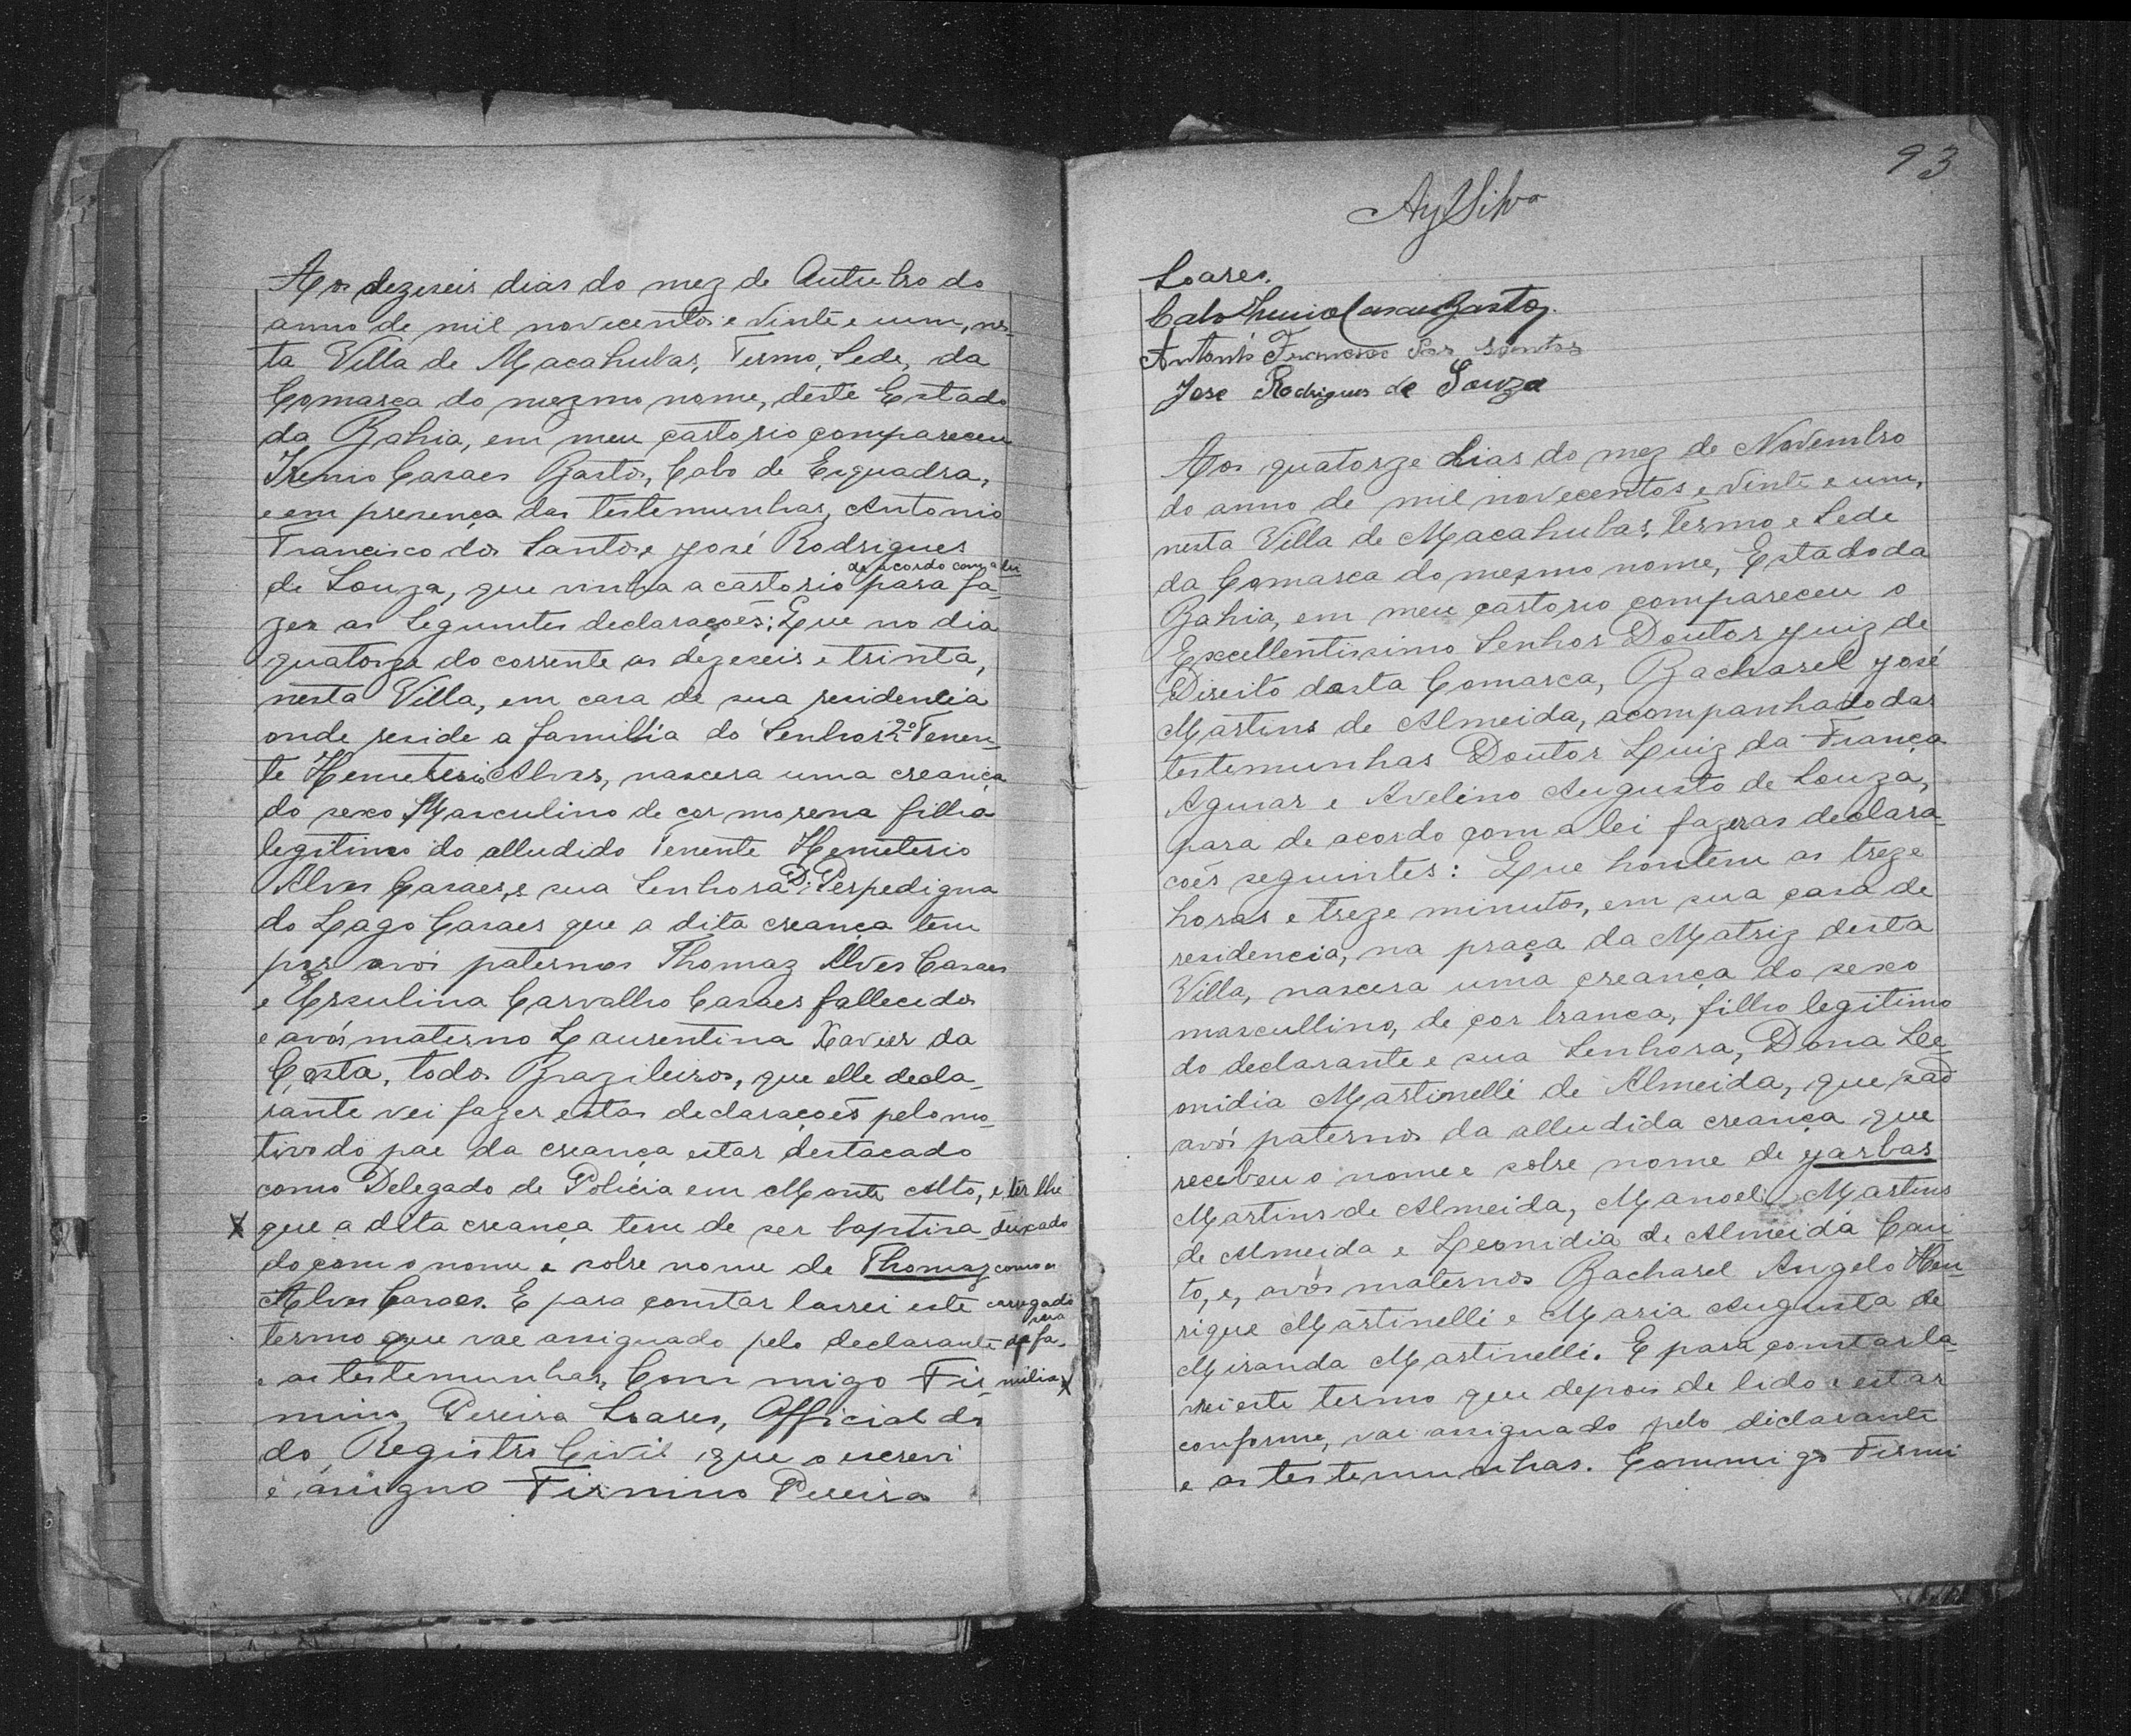 Aos dezeseis dias do mez de Outubro do
anno de mil novecentos e vinte e um, nes-
ta Villa de Macahubas, Termo, Sede, da
Comarca do mezmo nome, deste Estado
da Bahia, em meu cartorio compareceu
Irenio Casaes Bastos, Cabo de Esquadra,
e em presença das testemunhas, Antonio
Francisco dos Santos, e José Rodrigues
de acordo com a lei
de Souza, que vinha a cartorio para fa-
zer as seguintes declarações: Que no dia
quatorze do corrente as dezeseis e trinta,
nesta Villa, em casa de sua residencia
onde reside a familia do Senhor 2º Tenen-
te Hemeterio Alves, nascera uma creança
do sexo Masculino de cor morena filho
legitimo do alludido Tenente Hemeterio
Alves Casaes, e sua Senhora D. Perpedigna
do Lago Casaes que a dita creança tem
por avós paternos Thomaz Alves Casaes
e Ursulina Carvalho Casaes fallecidos
e avós materno Laurentina Xavier da
Costa, todos Brazileiros, que elle decla-
rante vei fazer estas declarações pelo mo-
tivo do pae da creança estar destacado
como Delegado de Policia em Monte Alto, e ter lhe
X que a dita creança tem de ser baptisa- deixado
do com o nome e sobre nome de Thomaz como en
Alves Casaes. E para constar lavrei este carregado
para
termo que vae assignado pelo declarante da fa-
e as testemunhas, Com migo Fir- milia X
mino Pereira Soares, Official do
do Registro Civil que o escrevi
e assigno Firmino Pereira
93
Ay Silva
Soares.
Cabo Irenio Casaes Bastos.
Antonio Francisco dos Santos
Jose Rodrigues de Souza
Aos quatorze dias do mez de Novembro
do anno de mil novecentos e vinte e um,
nesta Villa de Macahubas, Termo e Sede
da Comarca do mesmo nome, Estado da
Bahia, em meu cartorio compareceu o
Excellentissimo Senhor Doutor Juiz de
Direito desta Comarca, Bacharel José
Martins de Almeida, acompanhado das
testemunhas Doutor Luiz da França
Aguiar e Avelino Augusto de Souza,
para de acordo com a lei fazer as declara-
coẽs seguintes: Que hontem as treze
horas e treze minutos, em sua casa de
residencia, na praça da Matriz desta
Villa, nascera uma creança do sexo
mascullino, de cor branca, filho legitimo
do declarante e sua Senhora, Dona Le-
onidia Martinelli de Almeida, que são
avós paternos da alludida creança que
recebeu o nome e sobre nome de Jarbas
Martins de Almeida, Manoel Martins
de Almeida e Leonidia de Almeida Cau-
to, e, avós maternos Bacharel Angelo Hen-
rique Martinelli e Maria Augusta de
Miranda Martinelli. E para constar la-
vrei este termo que depois de lido e estar
conforme, vae assignado pelo diclarante
e as testemunhas. Commigo Firmi